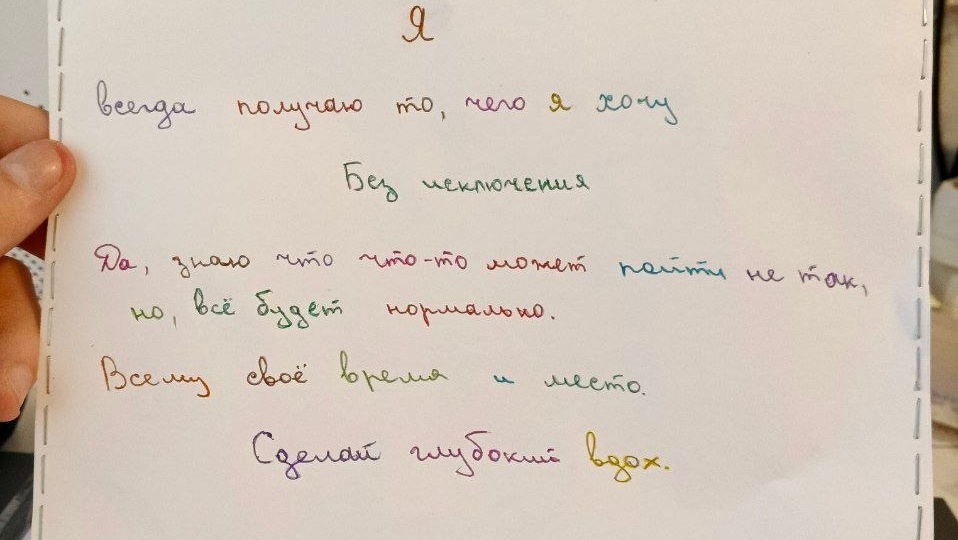 Я
всегда получаю то, чего я хочу
Без исключения
Да, знаю что что-то может пойти не так,
но, всё будет нормально.
Всему своё время и место.
Сделай глубокий вдох.